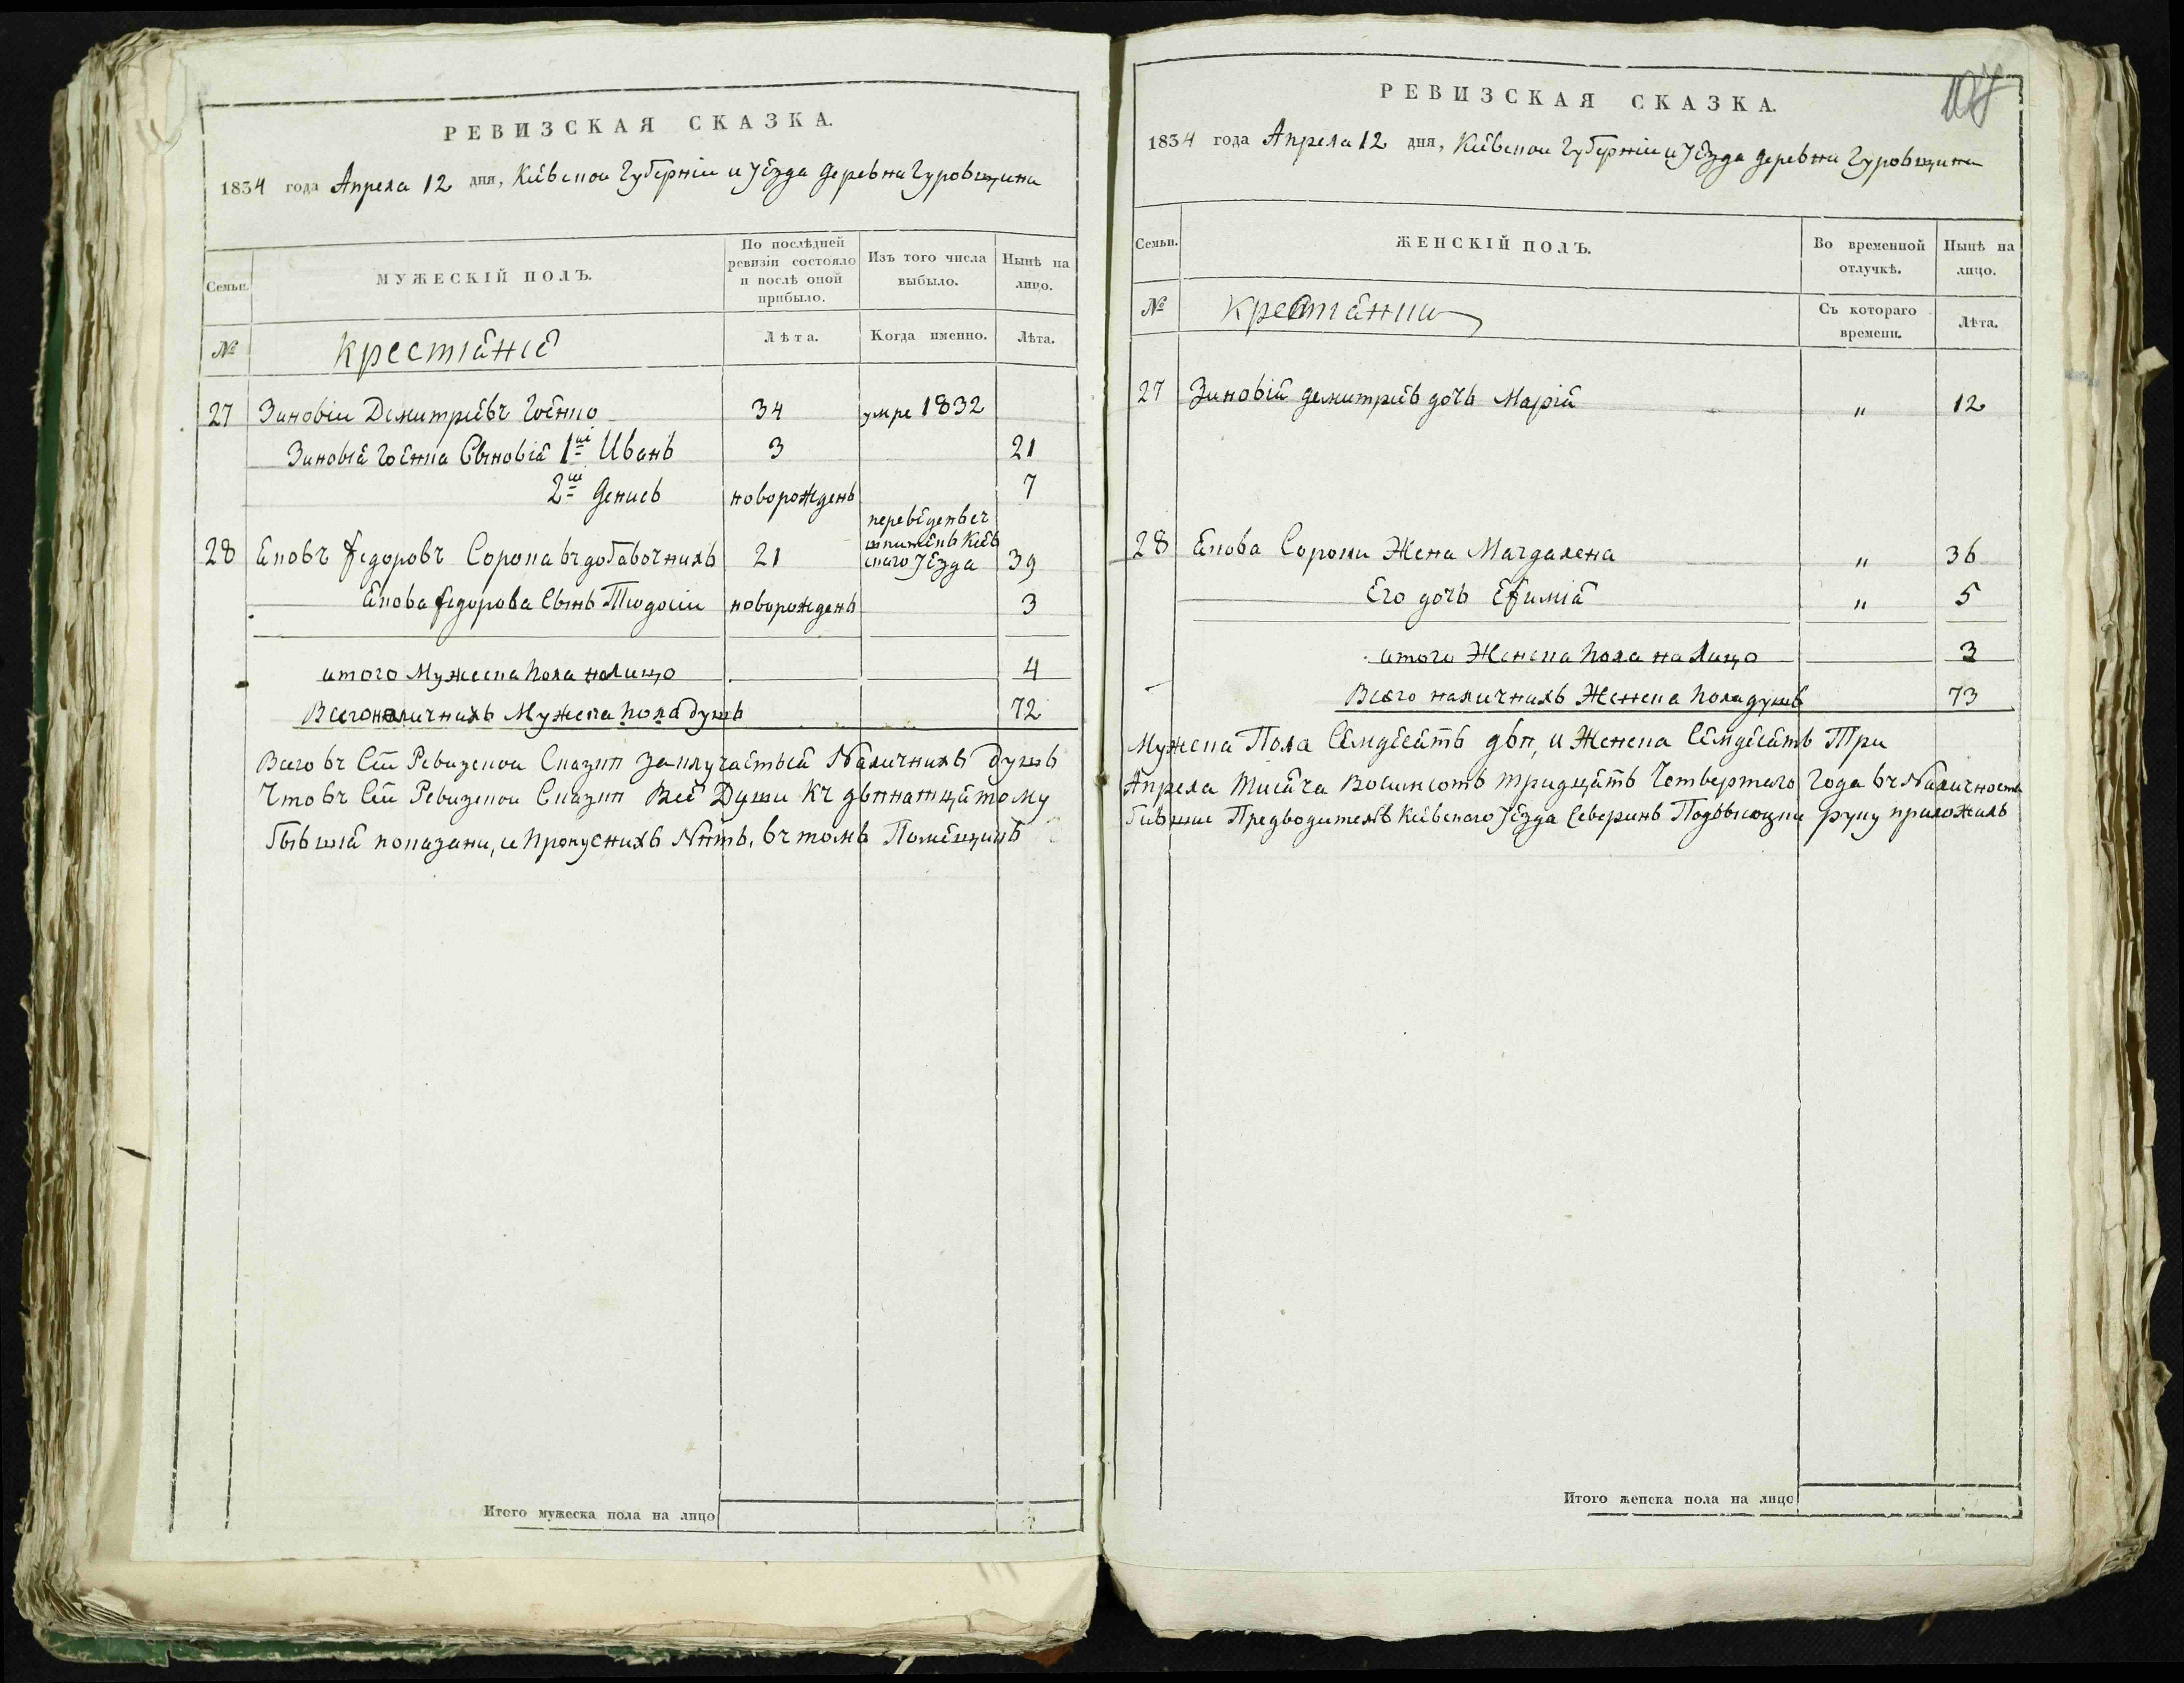 РЕВИЗСКАЯ СКАЗКА.
1834 года Апреля 12 дня, Кіевской Губерніи и Уезда деревни Гуровщини
Семьи.
МУЖЕСКІЙ ПОЛЪ.
По послѣдней ревизіи состояло и послѣ оной прибыло.
Изъ того числа выбыло.
Нынѣ на лицо.
№
крестіяне
Лѣта.
Когда именно.
Лѣта.
27 Зиновіи Демитриевъ 34 умре 1832
Зиновія Сыновія 1й Иванъ 3 21
2й Денисъ новорожденъ 7
переведенъ съ
Кіев
28 Яковъ Федоровъ Сорока въ добавочнихъ 21 скаго Уезда 39
Якова Федорова Сынъ Тиодосіи новорожденъ 3
итого Мужеска пола налицо 4
Всего наличнихъ Мужеска пола душъ 72
Всего въ Сей Ревизской Сказки заключаетьса Наличнихъ Душъ
Что въ Сей Ревизской Сказки Все Души Къ двпнатцятому
бывшія показани, и пропускнихъ Нптъ, въ томъ Помещикъ
Итого мужеска пола на лицо
107
РЕВИЗСКАЯ СКАЗКА.
1834 года Апреля 12 дня, Кіевской Губерніи и Уезда деревни Гуровщини
Семьи.
ЖЕНСКІЙ ПОЛЪ.
Во временной отлучкѣ.
Нынѣ на лицо.
№
крестянки
Съ котораго времени.
Лѣта.
27 Зиновія демитриев дочь Марія " 12
28 Якова Сороки Жена Магдалена " 36
Его дочь Ефимія " 5
итого Женска пола на лицо 3
Всего наличнихъ Женска пола душъ 73
Мужска Пола Семдесятъ двп, и Женска Семдесятъ Три
Апреля тисяча Восимсотъ тридцать Четвертаго Года въ Наличности
бившіи Предводитель Кіевскаго Уезда Северинъ Подвысоцки руку приложилъ
Итого женска пола на лицо